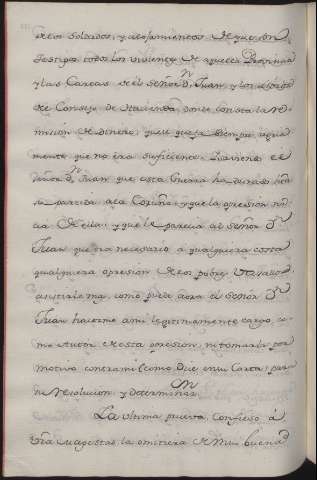 de los soldados, y alojamientos de que son
testigos todos los vivientes de aquella Provincia
y las Cartas de el Señor Dn Juan, y los despachos
de Consejo de Hacienda, donde consta la re-
mision de dinero, que
mente que no era suficiente: Y haviendo el
Señor Dn Juan que esta Guerra ha durado
parecida a la Coruña; y que la opresion
cia de ella; y que le parecia al Señor Dn
Juan que era necesario a qualquiera costa
qualquiera opresion de los pobres Vasallos
asistirle mas, como puede aora el Señor Dn
Juan hacerme a mi legitimamente cargo, co-
mo Autor de esta opresion, ni tomarla por
motivo contra mi (como Dice en su Carta) para
su resolucion, y determinar
La ultima puerta, Confieso á
Vra Magestad la omitiera de muy buena